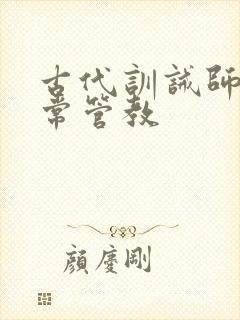 古代訓誡師日
常管教
顏慶剛